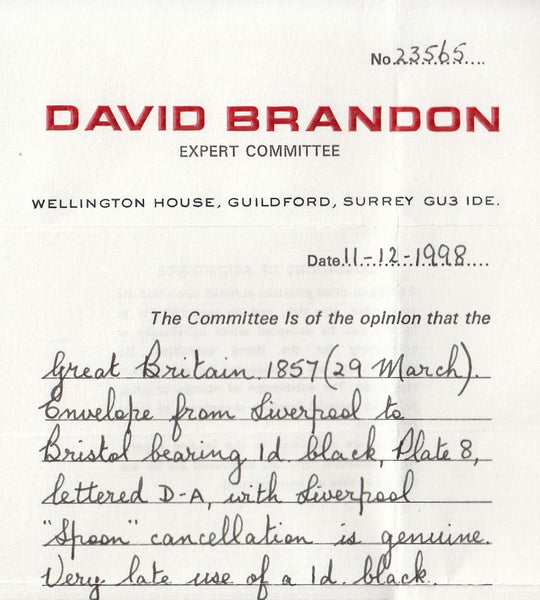 No. 23565
DAVID BRANDON
EXPERT COMMITTEE
WELLINGTON HOUSE, GUILDFORD, SURREY GU3 IDE.
Date 11-12-1998
The Committee Is of the opinion that the
Great Britain. 1857 (29 March).
Envelope from Liverpool to
Bristol bearing 1d. black, Plate 8,
lettered D-A, with Liverpool
"Spoon" cancellation is genuine.
Very late use of a 1d. black.